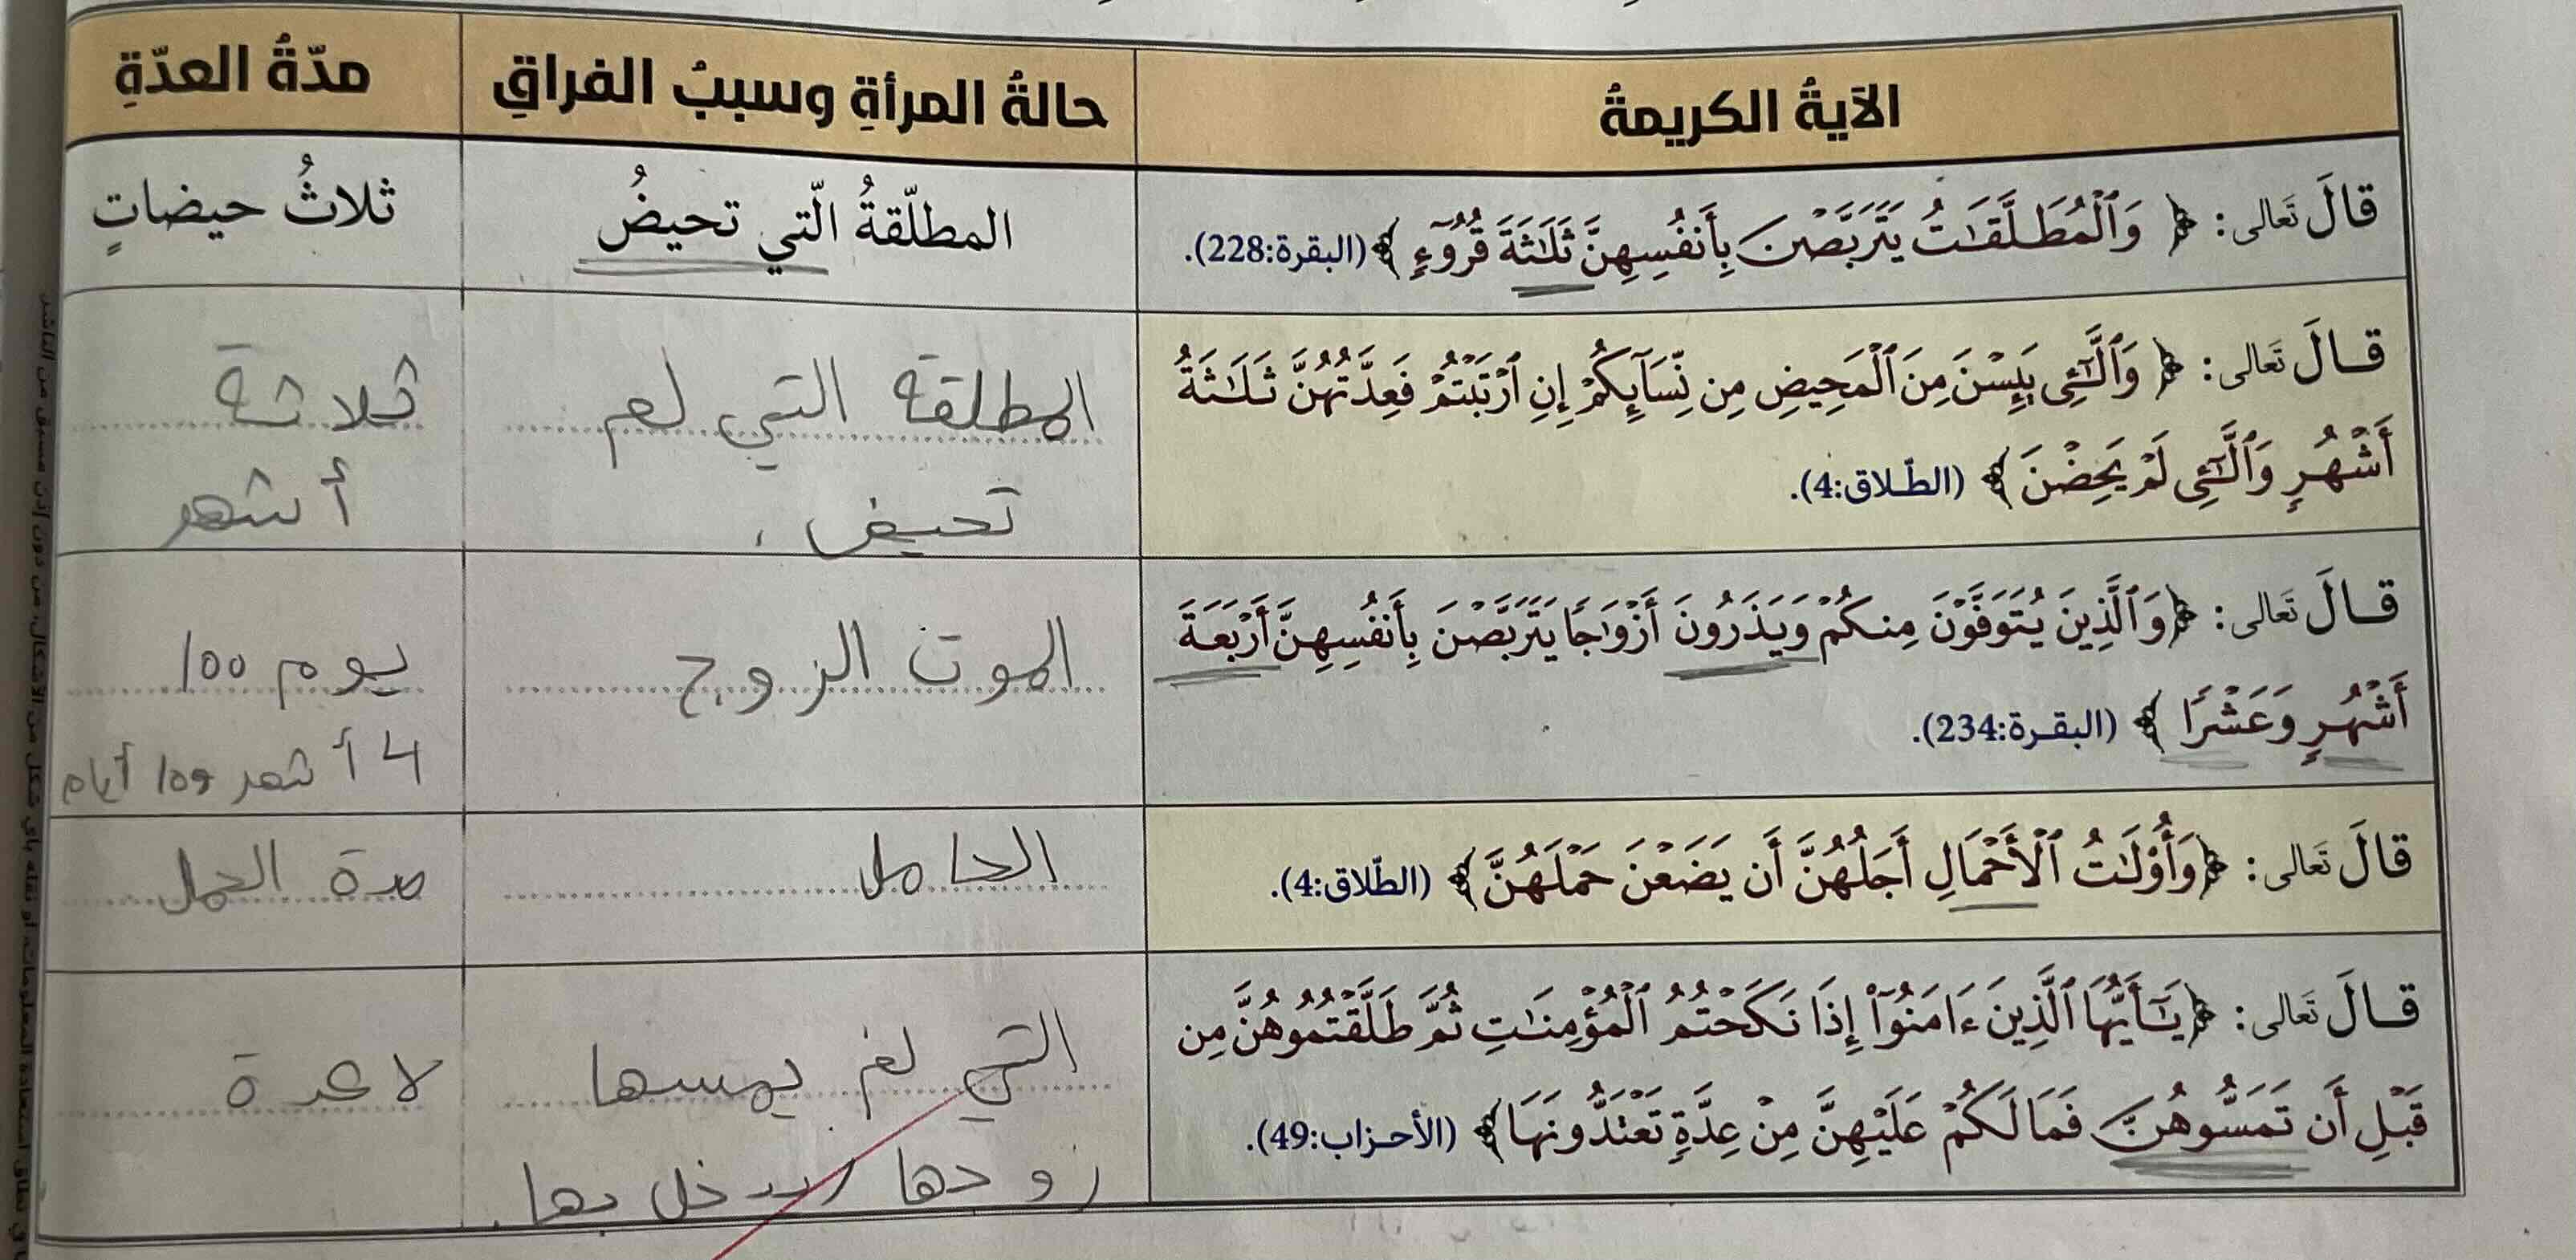 الآيةُ الكريمةُ
حالةُ المرأةِ وسببُ الفراقِ
مدّةُ العدّةِ
قالَ تَعالى: ﴿ وَٱلْمُطَلَّقَٰتُ يَتَرَبَّصْنَ بِأَنفُسِهِنَّ ثَلَٰثَةَ قُرُوٓءٍ ﴾ (البقرة:228).
المطلّقةُ الّتي تحيضُ
ثلاثُ حيضاتٍ
قالَ تَعالى: ﴿ وَٱلَّٰٓـِٔى يَئِسْنَ مِنَ ٱلْمَحِيضِ مِن نِّسَآئِكُمْ إِنِ ٱرْتَبْتُمْ فَعِدَّتُهُنَّ ثَلَٰثَةُ
أَشْهُرٍ وَٱلَّٰٓـِٔى لَمْ يَحِضْنَ ﴾ (الطّلاق:4).
المطلقة التي لم
تحيض .
ثلاثة
أشهر
قالَ تَعالى: ﴿وَٱلَّذِينَ يُتَوَفَّوْنَ مِنكُمْ وَيَذَرُونَ أَزْوَٰجًا يَتَرَبَّصْنَ بِأَنفُسِهِنَّ أَرْبَعَةَ
أَشْهُرٍ وَعَشْرًا ﴾ (البقرة:234).
الموت الزوج
يوم 100
4 أشهر و10 أيام
قالَ تَعالى: ﴿وَأُو۟لَٰتُ ٱلْأَحْمَالِ أَجَلُهُنَّ أَن يَضَعْنَ حَمْلَهُنَّ ﴾ (الطّلاق:4).
الحامل
مدة الحمل
قالَ تَعالى: ﴿يَٰٓأَيُّهَا ٱلَّذِينَ ءَامَنُوٓا۟ إِذَا نَكَحْتُمُ ٱلْمُؤْمِنَٰتِ ثُمَّ طَلَّقْتُمُوهُنَّ مِن
قَبْلِ أَن تَمَسُّوهُنَّ فَمَا لَكُمْ عَلَيْهِنَّ مِنْ عِدَّةٍ تَعْتَدُّونَهَا﴾ (الأحزاب:49).
التي لم يمسها
زوجها يدخل بها.
لا عدة